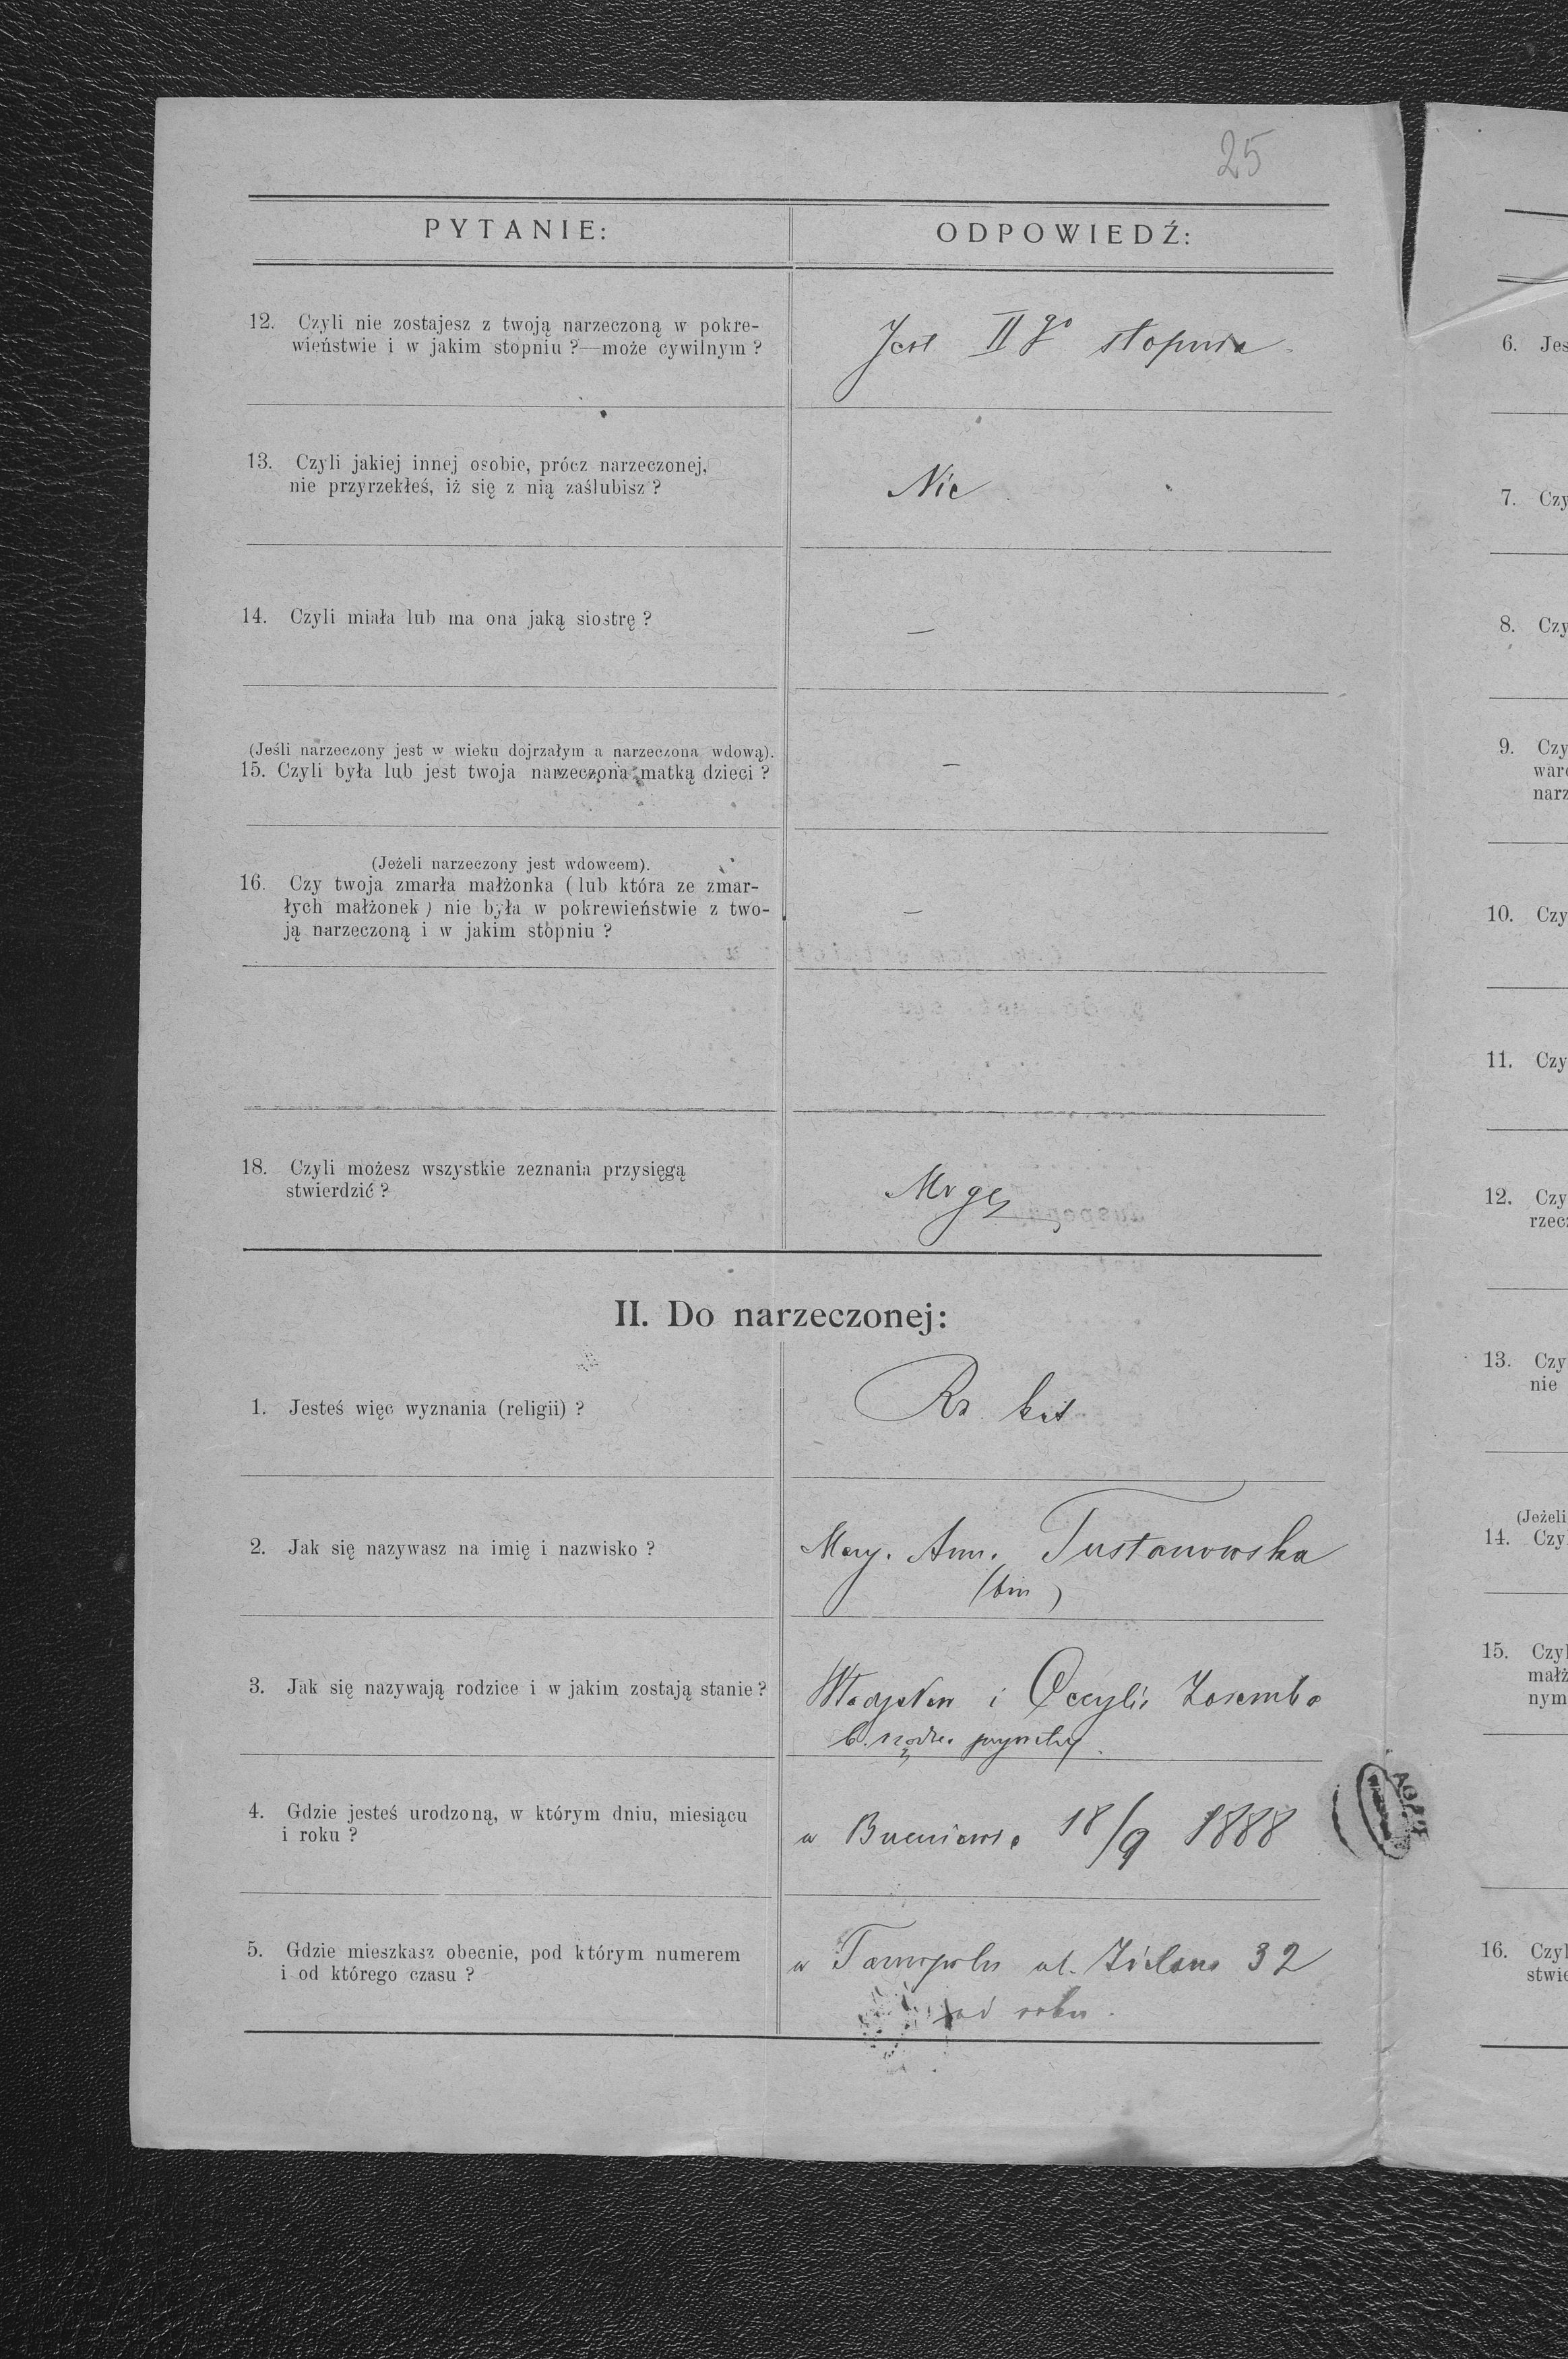 25
PYTANIE: ODPOWIEDŹ:
12. Czyli nie zostajesz z twoją narzeczoną w pokre-
wieństwie i w jakim stopniu ?—może cywilnym ?
Jest II go stopnia
13. Czyli jakiej innej osobie, prócz narzeczonej,
nie przyrzekłeś, iż się z nią zaślubisz ?
Nie
14. Czyli miała lub ma ona jaką siostrę ?
—
(Jeśli narzeczony jest w wieku dojrzałym a narzeczona wdową).
15. Czyli była lub jest twoja narzeczona matką dzieci ?
—
(Jeżeli narzeczony jest wdowcem).
16. Czy twoja zmarła małżonka (lub która ze zmar-
łych małżonek) nie była w pokrewieństwie z two-
ją narzeczoną i w jakim stopniu ?
—
18. Czyli możesz wszystkie zeznania przysięgą
stwierdzić ?
Mogę
II. Do narzeczonej:
1. Jesteś więc wyznania (religii) ?
Rz. kat
2. Jak się nazywasz na imię i nazwisko ?
Mary. Ann. Tustanowska
3. Jak się nazywają rodzice i w jakim zostają stanie ?
Władysław i Cecylia Zaremba
4. Gdzie jesteś urodzoną, w którym dniu, miesiącu
i roku ?
w 18/9 1888
5. Gdzie mieszkasz obecnie, pod którym numerem
i od którego czasu ?
w Tarnopolu ul. Zielona 32
od roku.
6. Jes
7. Czy
8. Czy
9. Czy
ware
narz
10. Czy
11. Czy
12. Czy
rzec
13. Czy
nie
(Jeżeli
14. Czy
15. Czyl
małż
nym
16. Czyl
stwie